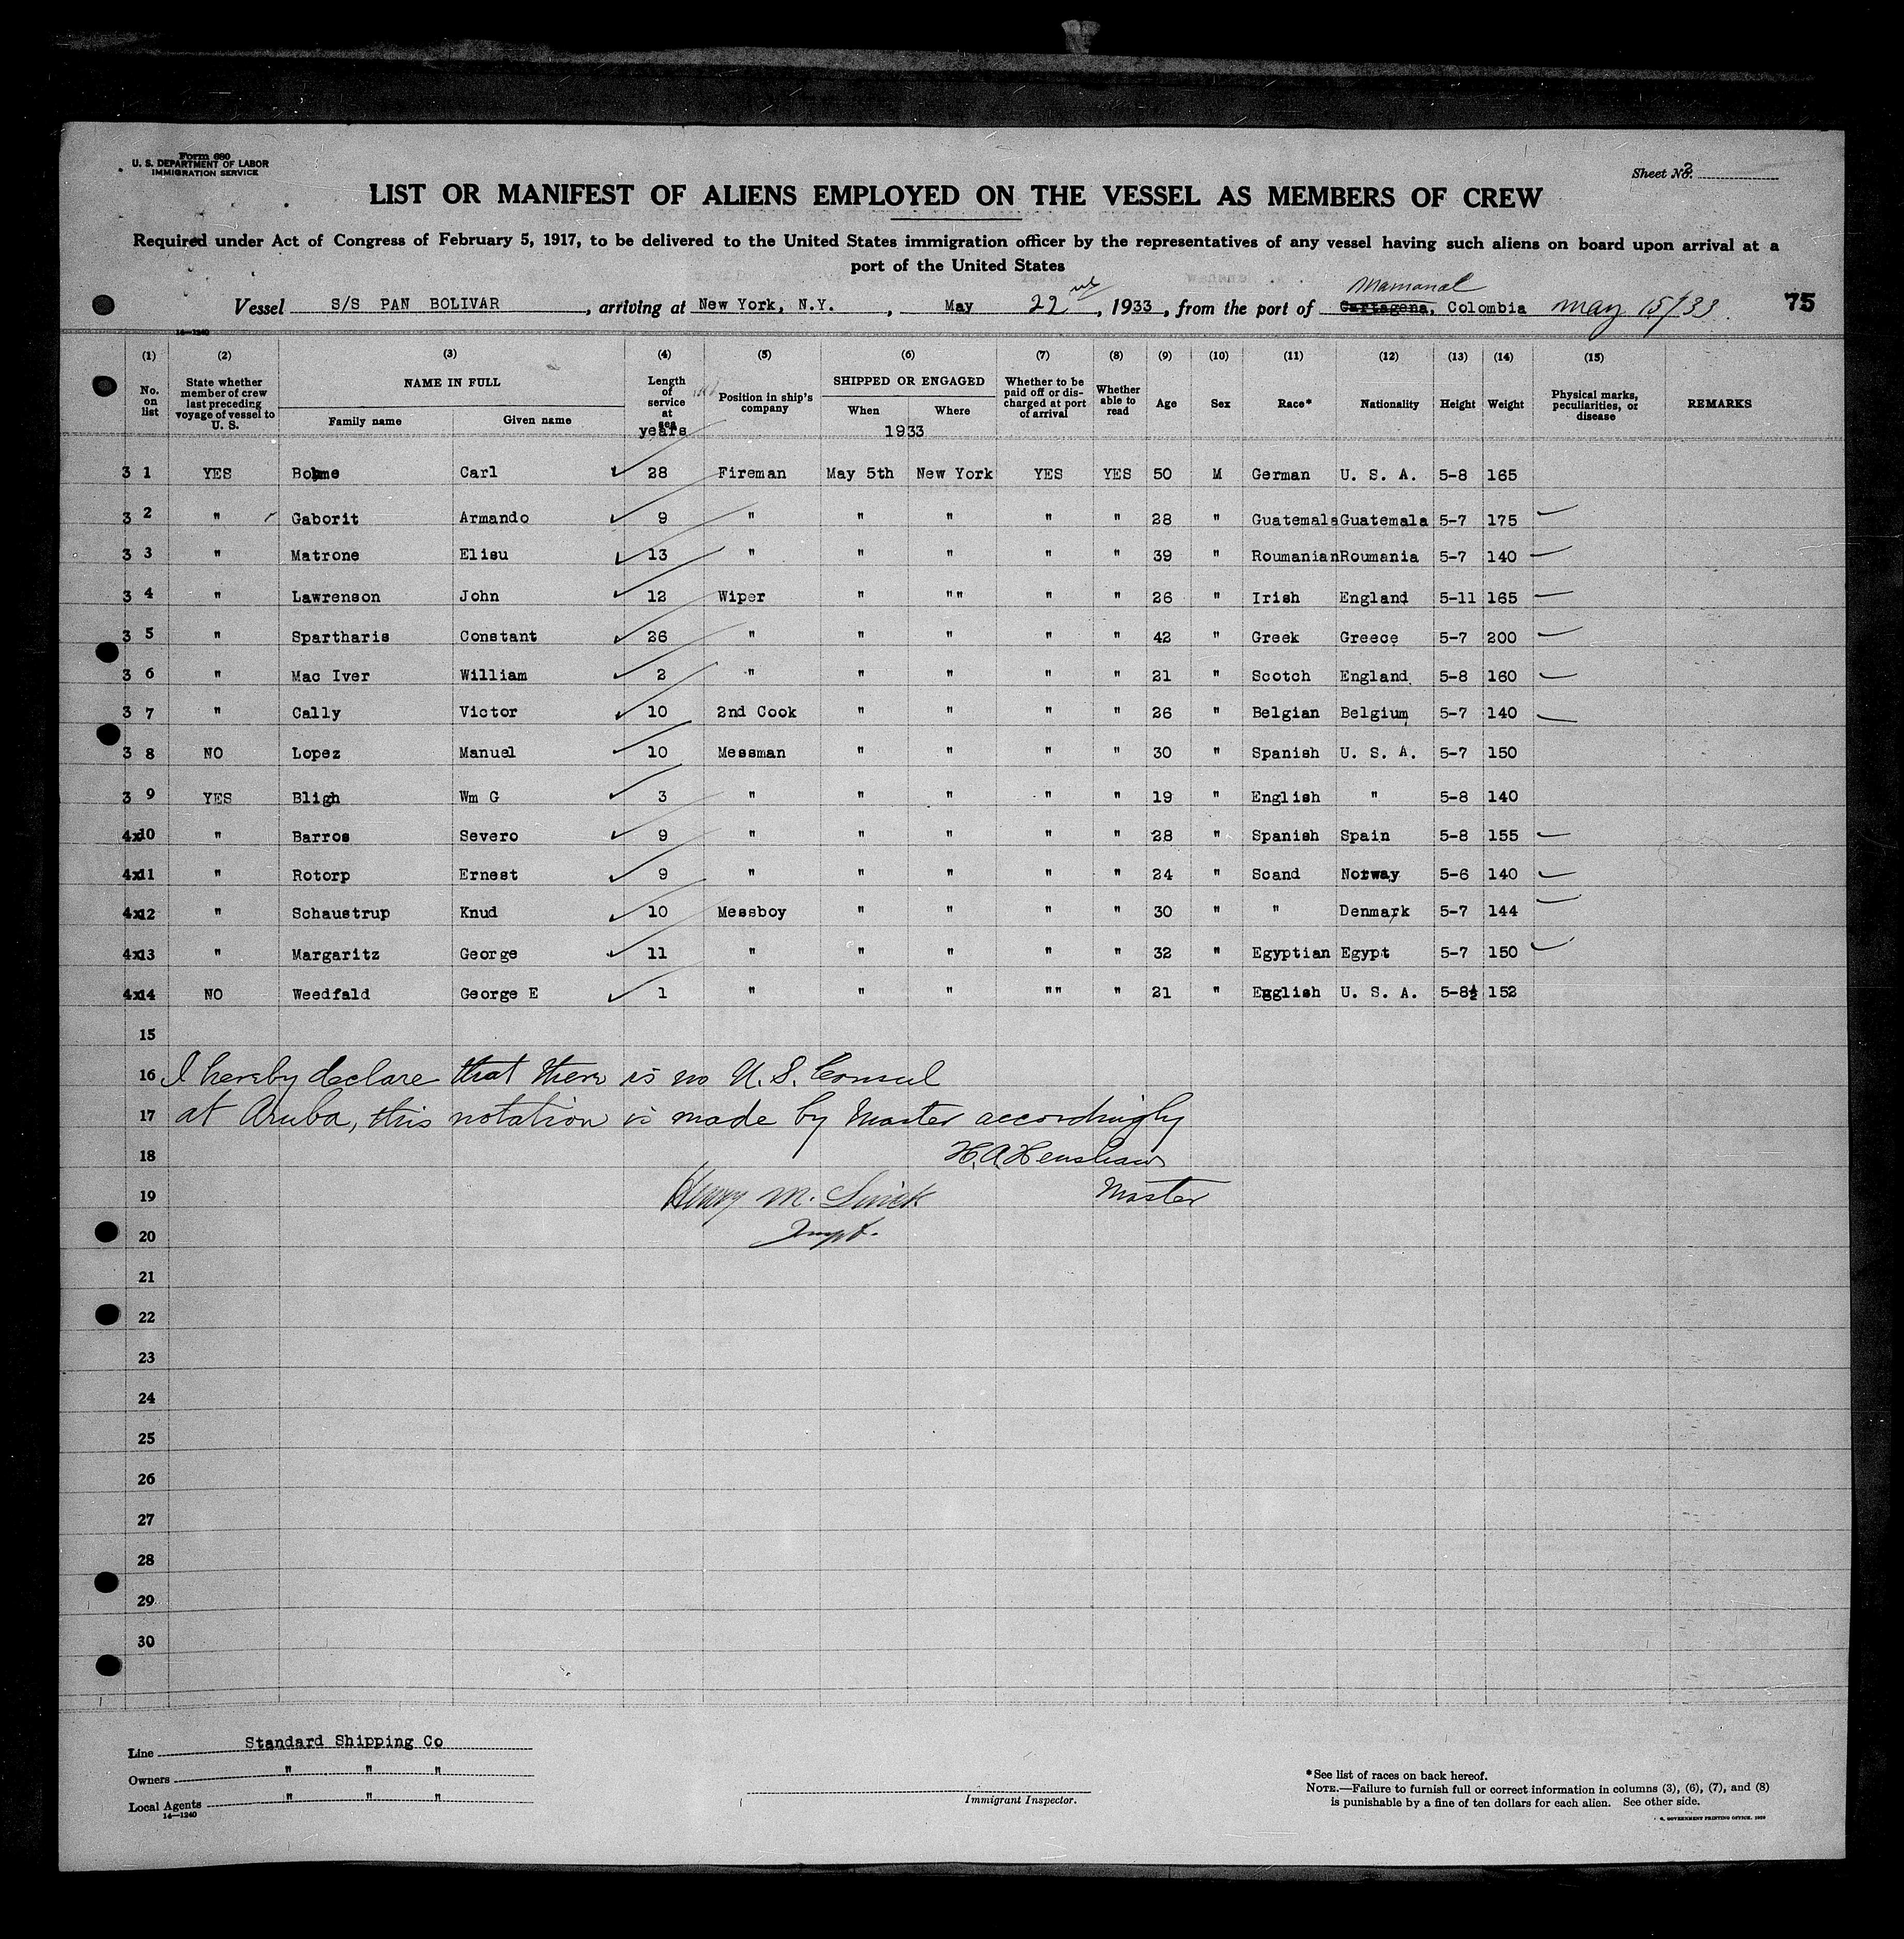 Form 680
U. S. DEPARTMENT OF LABOR
IMMIGRATION SERVICE
Sheet No.
LIST OR MANIFEST OF ALIENS EMPLOYED ON THE VESSEL AS MEMBERS OF CREW
Required under Act of Congress of February 5, 1917, to be delivered to the United States immigration officer by the representatives of any vessel having such aliens on board upon arrival at a
port of the United States
Mamonal
Vessel S/S PAN BOLIVAR, arriving at New York, N.Y., May 22nd, 1933, from the port of Cartagena, Colombia May 15/33. 75
14—1240
(1) (2) (3) (4) (5) (6) (7) (8) (9) (10) (11) (12) (13) (14) (15)
No. on list State whether member of crew last preceding voyage of vessel to U. S. NAME IN FULL Family name Given name Length of service at sea years Position in ship's company SHIPPED OR ENGAGED When Where 1933 Whether to be paid off or discharged at port of arrival Whether able to read Age Sex Race* Nationality Height Weight Physical marks, peculiarities, or disease REMARKS
3 1 YES Bohme Carl 28 Fireman May 5th New York YES YES 50 M German U. S. A. 5-8 165
3 2 " Gaborit Armando 9 " " " " " 28 " Guatemala Guatemala 5-7 175
3 3 " Matrone Elisu 13 " " " " " 39 " Roumanian Roumania 5-7 140
3 4 " Lawrenson John 12 Wiper " "" " " 26 " Irish England 5-11 165
3 5 " Spartharis Constant 26 " " " " " 42 " Greek Greece 5-7 200
3 6 " Mac Iver William 2 " " " " " 21 " Scotch England 5-8 160
3 7 " Cally Victor 10 2nd Cook " " " " 26 " Belgian Belgium 5-7 140
3 8 NO Lopez Manuel 10 Messman " " " " 30 " Spanish U. S. A. 5-7 150
3 9 YES Bligh Wm G 3 " " " " " 19 " English " 5-8 140
4x10 " Barros Severo 9 " " " " " 28 " Spanish Spain 5-8 155
4x11 " Rotorp Ernest 9 " " " " " 24 " Scand Norway 5-6 140
4x12 " Schaustrup Knud 10 Messboy " " " " 30 " " Denmark 5-7 144
4x13 " Margaritz George 11 " " " " " 32 " Egyptian Egypt 5-7 150
4x14 NO Weedfald George E 1 " " " "" " 21 " English U. S. A. 5-8½ 152
15
16 I hereby declare that there is no U. S. Consul
17 at Aruba, this notation is made by Master accordingly
18 H.A. Henshaw
19 Henry M. Master
20
21
22
23
24
25
26
27
28
29
30
Line Standard Shipping Co
Owners " " "
Local Agents " " "
14—1240
Immigrant Inspector.
*See list of races on back hereof.
NOTE.—Failure to furnish full or correct information in columns (3), (6), (7), and (8)
is punishable by a fine of ten dollars for each alien. See other side.
GOVERNMENT PRINTING OFFICE